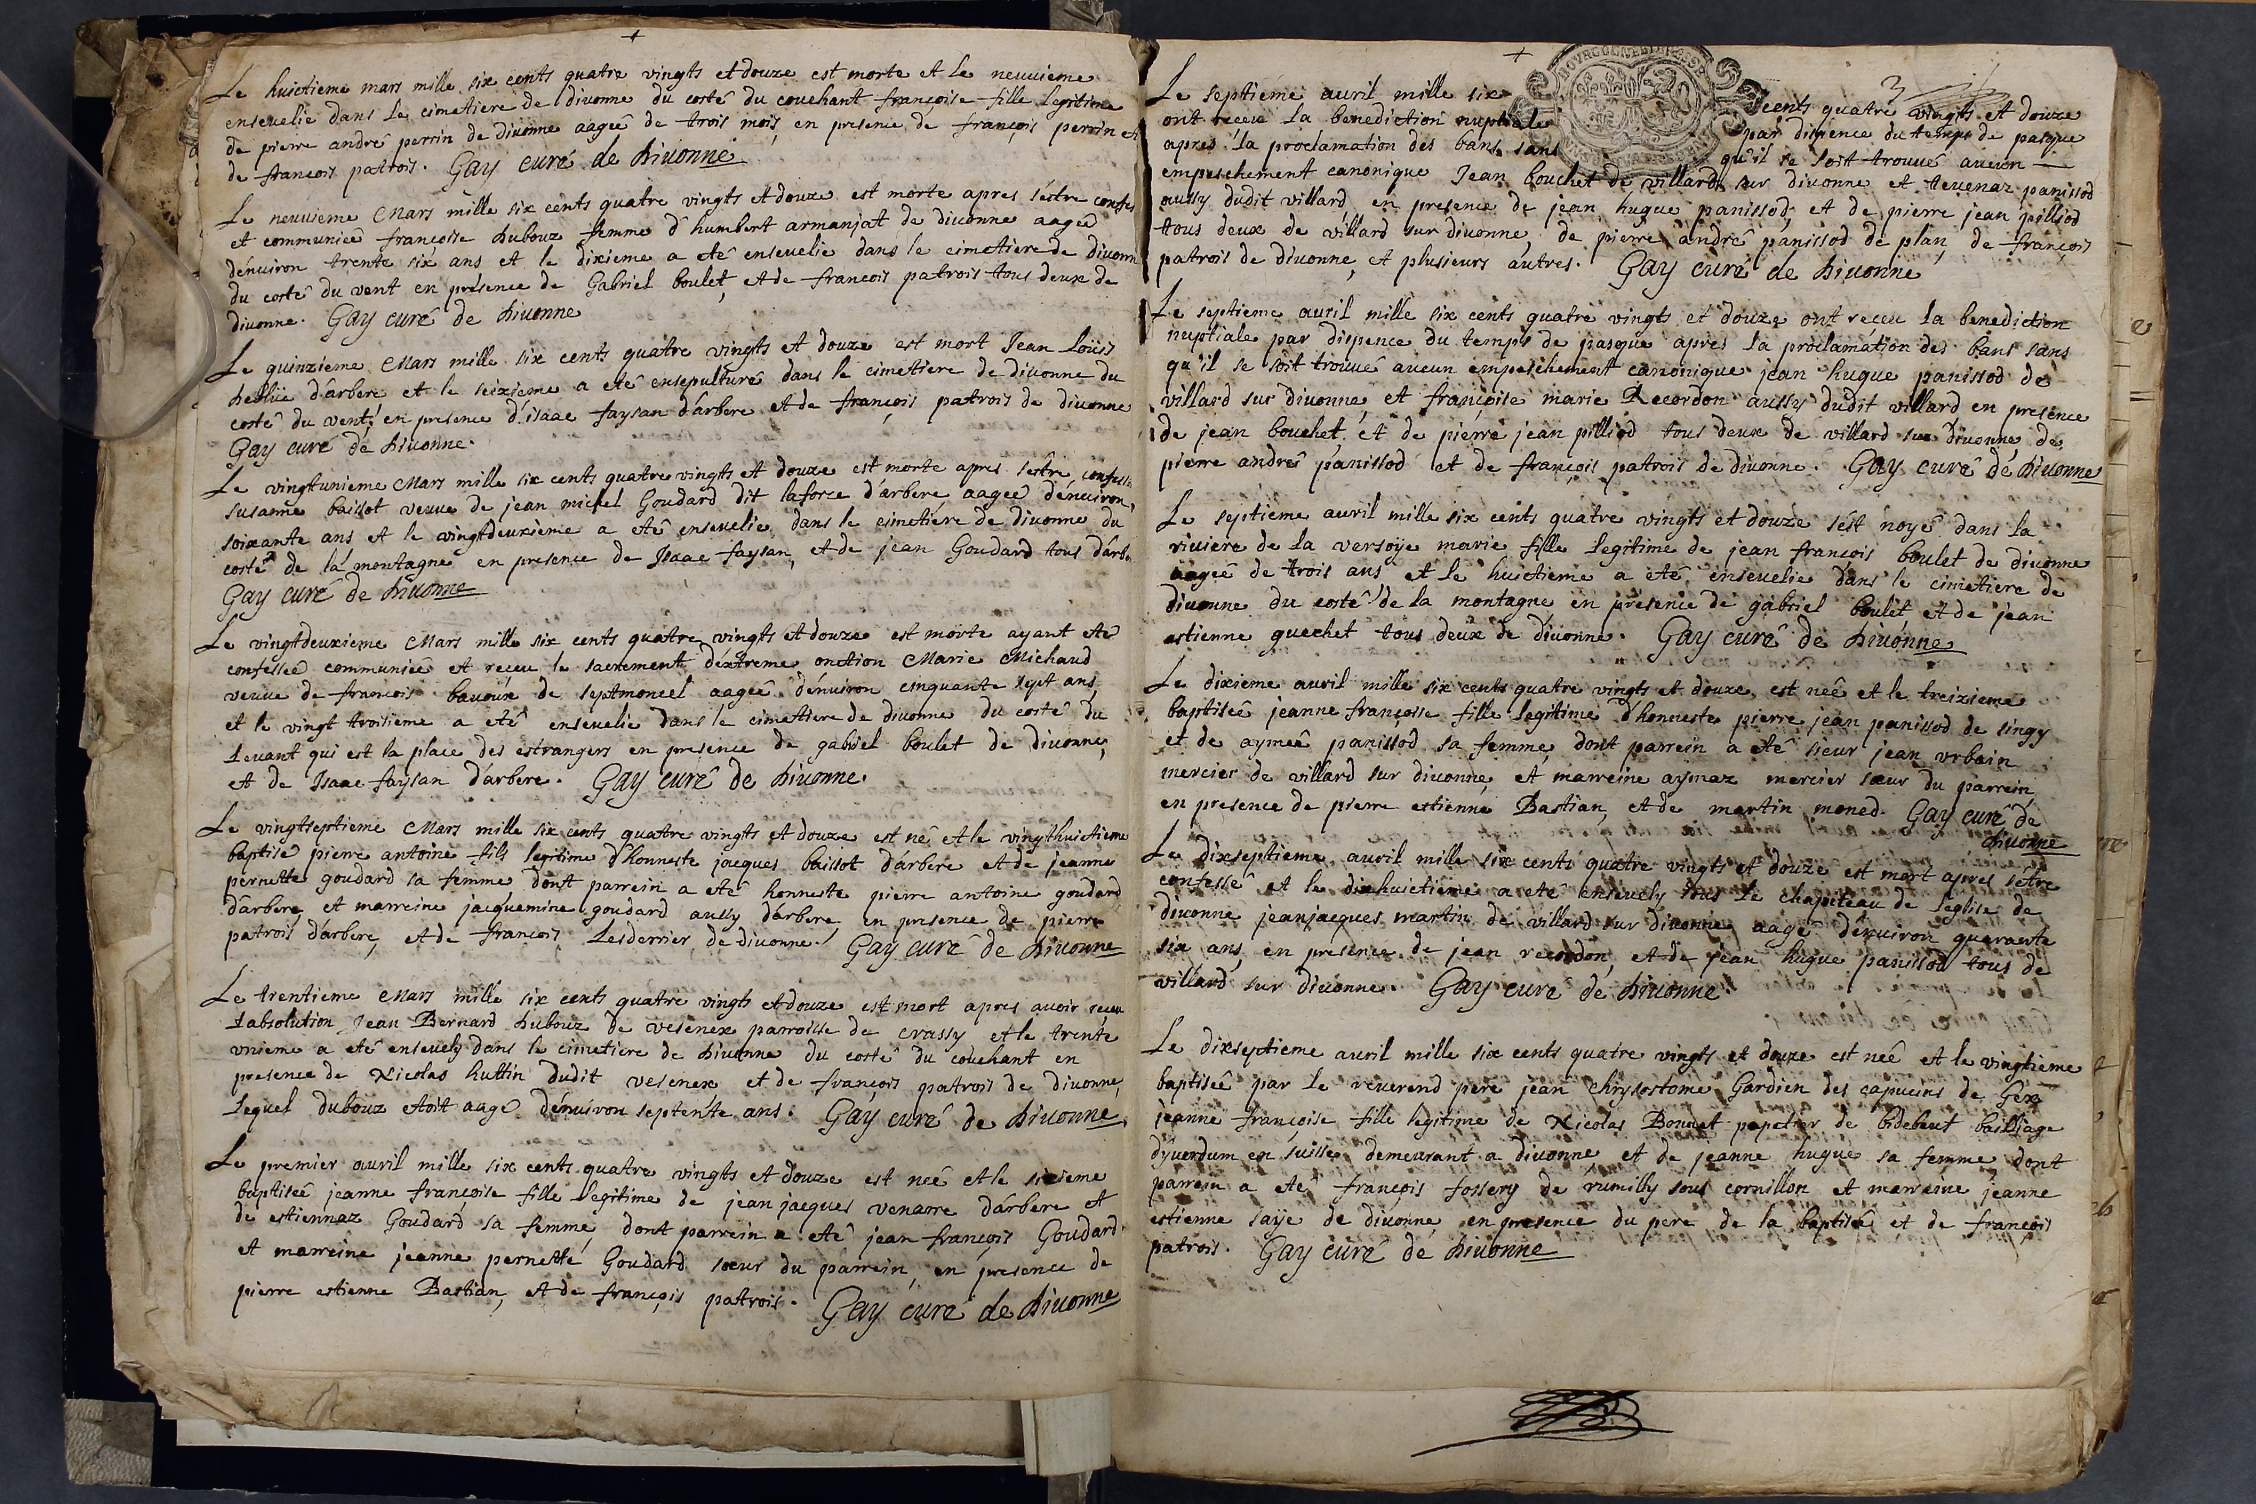 Le huictieme mars mille six cents quatre vingts et douze est morte et le neuuieme
enseuelie dans le cimetiere de diuonne du costé du couchant françoise fille legitime
de pierre andré perrin de diuonne aageé de trois mois en presence de françois perrin et
de francois patrois. Gay curé de diuonne
Le neuuieme Mars mille six cents quatre vingts et douze est morte apres s'estre confes
et communieé francoise dubouz femme d'humbert armanjat de diuonne aageé
d'enuiron trente six ans et le dixieme a eté enseuelie dans le cimettiere de diuonn
du costé du vent en presence de Gabriel boulet, et de francois patrois tous deux de
diuonne. Gay curé de diuonne
Le quinzieme Mars mille six cents quatre vingts et douze est mort Jean Loüis
d'arbere et le seizieme a eté ensepulturé dans le cimettiere de diuonne du
costé du vent, en presence d'isaac faysan d'arbere et de françois patrois de diuonne
Gay curé de diuonne.
Le vingtunieme Mars mille six cents quatre vingts et douze est morte apres s'estre confess
susanne baissot veuue de jean michel Goudard dit laforce d'arbere aageé d'enuiron
soixante ans et le vingtdeuxieme a eté enseuelie dans le cimetiere de diuonne du
costé de la montagne en presence de Isaac faysan, et de jean Goudard tous d'arbe
Gay curé de diuonne
Le vingtdeuxieme Mars mille six cents quatre vingts et douze est morte ayant eté
confesseé communieé et receu le sacrement d'extreme onction Marie Michaud
veuue de francois bauoux de septmoncel aageé d'enuiron cinquante sept ans
et le vingt troisieme a eté enseuelie dans le cimettiere de diuonne du costé du
Leuant qui est la place des estrangers en presence de gabriel boulet de diuonne,
et de Isaac faysan d'arbere. Gay curé de diuonne.
Le vingtseptieme Mars mille six cents quatre vingts et douze est né et le vingthuictieme
baptisé pierre antoine fils legitime d'honneste jacques baissot d'arbere et de jeanne
pernette goudard sa femme, dont parrein a eté honneste pierre antoine goudard
d'arbere, et marreine jacquemine goudard aussy d'arbere, en presence de pierre
patrois d'arbere, et de françois Lesderrier de diuonne. Gay curé de diuonne
Le trentieme Mars mille six cents quatre vingts et douze est mort apres auoir receu
l'absolution Jean Bernard dubouz de vesenex parroisse de crassy et le trente
vnieme a eté enseuely dans le cimetiere de diuonne du costé du couchant en
presence de Nicolas huttin dudit vesenex et de françois patrois de diuonne,
Lequel dubouz etoit aagé d'enuiron septente ans. Gay curé de diuonne
Le premier auril mille six cents quatre vingts et douze est neé et le sixieme
baptiseé jeanne françoise fille legitime de jean jacques venarre d'arbere et
de estiennaz Goudard sa femme, dont parrein a eté jean françois Goudard
et marreine jeanne pernette Goudard soeur du parrein, en presence de
pierre estienne Bastian, et de françois patrois. Gay curé de diuonne
Le septieme auril mille six cents quatre vingts et douze
ont receu la benediction nuptiale par dispence du temps de pasque
apres la proclamation des bans sans qu'il se soit trouué aucun
empeschement canonique Jean bouchet de villard sur diuonne et teuenaz panissod
aussy dudit villard en presence de jean hugue panissod, et de pierre jean pilliod
tous deux de villard sur diuonne, de pierre andré panissod de plan, de françois
patrois de diuonne, et plusieurs autres. Gay curé de diuonne
Le septieme auril mille six cents quatre vingts et douze ont receu la benediction
nuptiale par dispence du temps de pasque apres la proclamation des bans sans
qu'il se soit trouué aucun empeschement canonique jean hugue panissod de
villard sur diuonne, et françoise marie Recordon aussy dudit villard en presence
de jean bouchet et de pierre jean pilliod tous deux de villard sur diuonne de
pierre andré panissod et de françois patrois de diuonne. Gay curé de diuonne
Le septieme auril mille six cents quatre vingts et douze s'est noyé dans la
riuiere de la versoÿe marie fille legitime de jean françois boulet de diuonne
aageé de trois ans et le huictieme a eté enseuelie dans le cimetiere de
diuonne du costé de la montagne en presence de gabriel boulet et de jean
estienne quechet tous deux de diuonne. Gay curé de diuonne
Le dixieme auril mille six cents quatre vingts et douze, est neé et le treizieme
baptiseé jeanne françoise fille legitime d'honneste pierre jean panissod de singy
et de aymeé panissod sa femme, dont parrein a eté sieur jean vrbain
mercier de villard sur diuonne, et marreine aymaz mercier soeur du parrein
en presence de pierre estienne Bastian, et de martin moned. Gay curé de
diuonne
Le dixseptieme auril mille six cents quatre vingts et douze est mort apres s'estre
confessé et le dixhuictieme a eté enseuely sous le chapiteau de l'eglise de
diuonne jeanjacques martin de villard sur diuonne aagé d'enuiron quarante
six ans, en presence de jean recordon, et de jean hugue panissod tous de
villard sur diuonne. Gay curé de diuonne.
Le dixseptieme auril mille six cents quatre vingts et douze est neé et le vingtieme
baptiseé par le reuerend pere jean chrysostome Gardien des capucins de Gex
jeanne françoise fille legitime de Nicolas Bonnet papetier de bdebeut bailliage
d'yuerdum en suisse demeurant a diuonne et de jeanne hugue sa femme, dont
parrein a eté françois fossery de rumilly sous cornillon et marreine jeanne
estienne saÿe de diuonne, en presence du pere de la baptiseé et de françois
patrois. Gay curé de diuonne